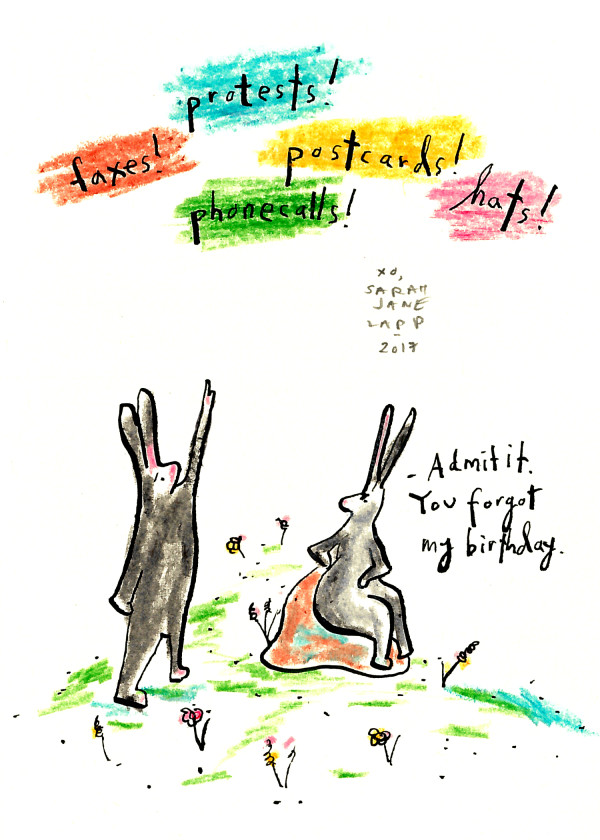 protests!
faxes!
postcards!
phonecalls!
hats!
xo,
SARAH
JANE
LAPP
-
2017
- Admit it.
You forgot
my birthday.